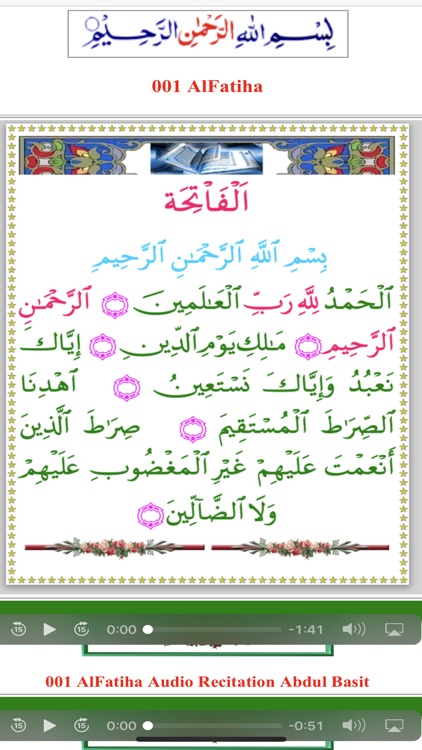 بِسْمِ اللهِ الرَّحْمٰنِ الرَّحِيْمِ
001 AlFatiha
اَلْفَاْتِحَة
بِسْمِ ٱللَّهِ ٱلرَّحْمَـٰنِ ٱلرَّحِيمِ
ٱلْحَمْدُ لِلَّهِ رَبِّ ٱلْعَـٰلَمِينَ ۝ ٱلرَّحْمَـٰنِ
ٱلرَّحِيمِ ۝ مَـٰلِكِ يَوْمِ ٱلدِّينِ ۝ إِيَّاكَ
نَعْبُدُ وَإِيَّاكَ نَسْتَعِينُ ۝ ٱهْدِنَا
ٱلصِّرَٰطَ ٱلْمُسْتَقِيمَ ۝ صِرَٰطَ ٱلَّذِينَ
أَنْعَمْتَ عَلَيْهِمْ غَيْرِ ٱلْمَغْضُوبِ عَلَيْهِمْ
وَلَا ٱلضَّآلِّينَ ۝
15 15 0:00 -1:41
001 AlFatiha Audio Recitation Abdul Basit
15 15 0:00 -0:51